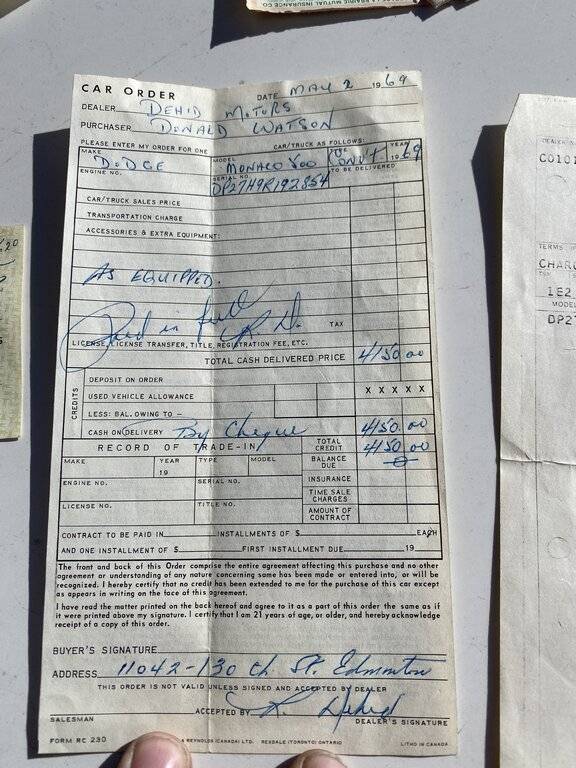 LA PRAIRIE MUTUAL INSURANCE CO.
CAR ORDER DATE MAY 2 1969
DEALER DEHID MOTORS
PURCHASER DONALD WATSON
PLEASE ENTER MY ORDER FOR ONE CAR/TRUCK AS FOLLOWS:
MAKE DODGE MODEL MONACO 500 CONV'T YEAR 1969
ENGINE NO. SERIAL NO. DP27H9R192854 TO BE DELIVERED
CAR/TRUCK SALES PRICE
TRANSPORTATION CHARGE
ACCESSORIES & EXTRA EQUIPMENT:
AS EQUIPPED.
Paid in full
TAX
LICENSE, LICENSE TRANSFER, TITLE, REGISTRATION FEE, ETC.
TOTAL CASH DELIVERED PRICE 4150 00
CREDITS
DEPOSIT ON ORDER
USED VEHICLE ALLOWANCE X X X X X
LESS: BAL. OWING TO –
CASH ON DELIVERY By Cheque 4150 00
RECORD OF TRADE-IN TOTAL CREDIT 4150 00
MAKE YEAR 19 TYPE MODEL BALANCE DUE 0
ENGINE NO. SERIAL NO. INSURANCE
TIME SALE CHARGES
LICENSE NO. TITLE NO. AMOUNT OF CONTRACT
CONTRACT TO BE PAID IN INSTALLMENTS OF $ EACH
AND ONE INSTALLMENT OF $ FIRST INSTALLMENT DUE 19
The front and back of this Order comprise the entire agreement affecting this purchase and no other
agreement or understanding of any nature concerning same has been made or entered into, or will be
recognized. I hereby certify that no credit has been extended to me for the purchase of this car except
as appears in writing on the face of this agreement.
I have read the matter printed on the back hereof and agree to it as a part of this order the same as if
it were printed above my signature. I certify that I am 21 years of age, or older, and hereby acknowledge
receipt of a copy of this order.
BUYER'S SIGNATURE
ADDRESS 11042-130 St. Edmonton
THIS ORDER IS NOT VALID UNLESS SIGNED AND ACCEPTED BY DEALER
ACCEPTED BY R. Dehid
SALESMAN DEALER'S SIGNATURE
FORM RC 230 & REYNOLDS (CANADA) LTD. REXDALE (TORONTO) ONTARIO LITHO IN CANADA
DEALER
CO101
TERMS
CHARG
1E2
MODEL
DP27